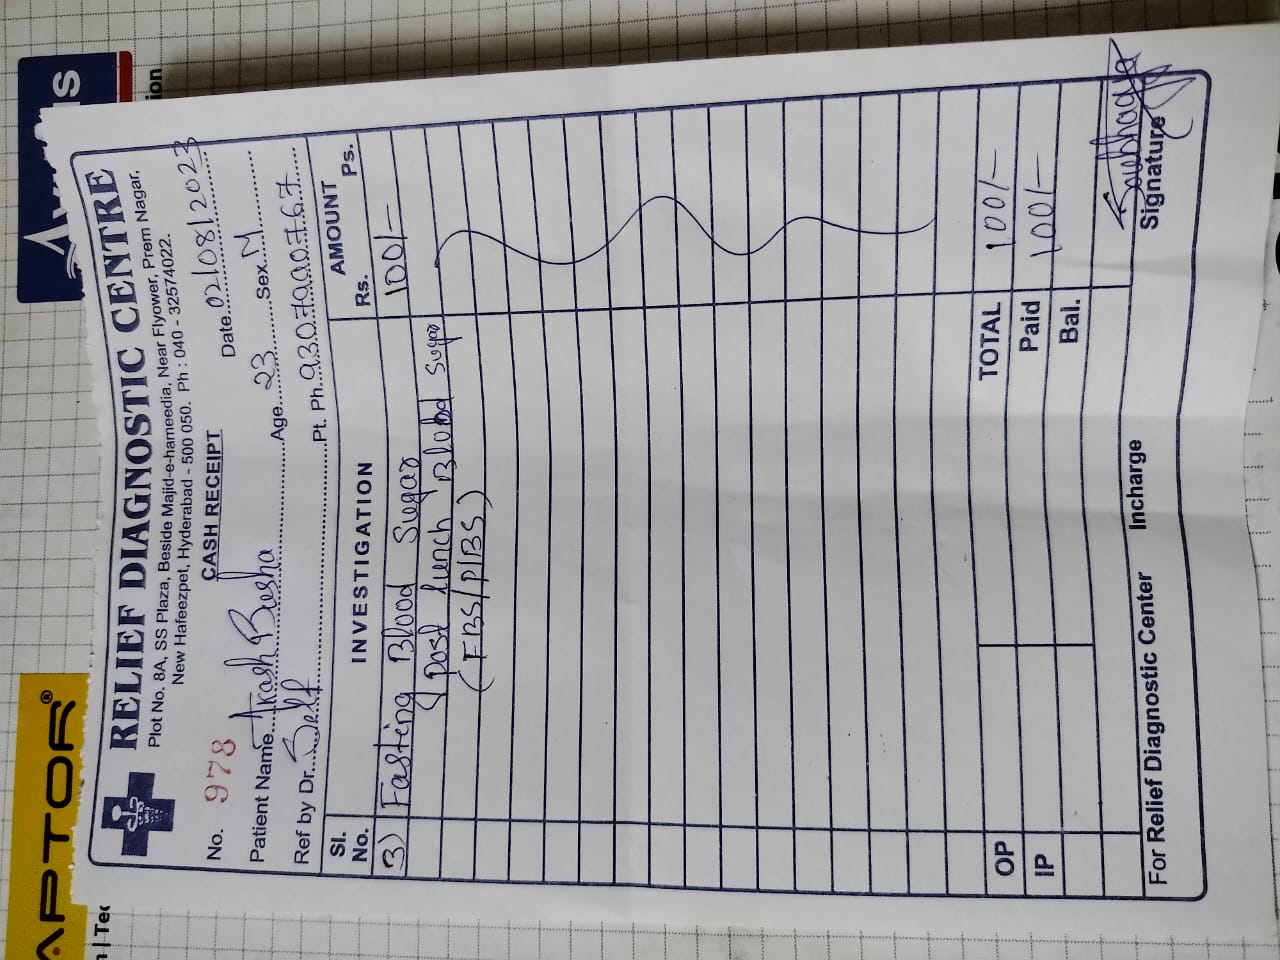 RELIEF DIAGNOSTIC CENTRE
Plot No. 8A, SS Plaza, Beside Majid-e-hameedia, Near Flyower, Prem Nagar,
New Hafeezpet, Hyderabad - 500 050. Ph : 040 - 32574022.
CASH RECEIPT
No. 978 Date 02/08/2023
Patient Name Akash Busha Age 23 Sex M
Ref by Dr. Self Pt. Ph. 9307990767
Sl. No. INVESTIGATION AMOUNT Rs. Ps.
3) Fasting Blood Sugar 100/-
post lunch Blood Sugar
(FBS/PLBS)
OP TOTAL 100/-
IP Paid 100/-
Bal.
For Relief Diagnostic Center Incharge Signature
APTOR®